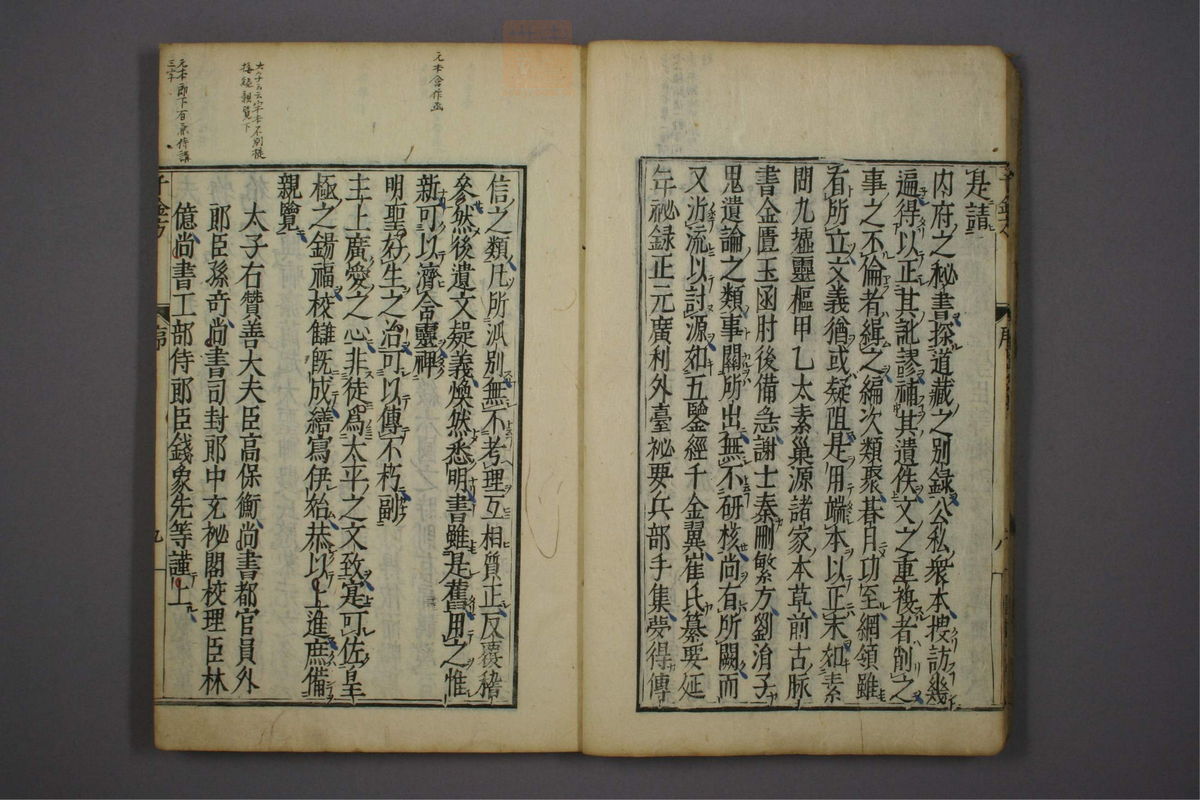 是請
内府之秘書探道藏之別錄公私衆本搜訪幾
遍得以正其訛謬補其遺佚文之重複者削之
事之不倫者緝之編次類聚朞月功至綱領雖
有所立文義猶或疑阻是用端本以正末如素
問九墟靈樞甲乙太素巢源諸家本草前古脈
書金匱玉函肘後備急謝士泰刪繁方劉涓子
鬼遺論之類事關所出無不研核尚有所闕而
又泝流以討源如五鑒經千金翼崔氏纂要延
年祕錄正元廣利外臺祕要兵部手集夢得傳
信之類凡所派別無不考理互相質正反覆稽
參然後遺文疑義煥然悉明書雖是舊用之惟
新可以濟含靈裨
明聖好生之治可以傳不朽副
主上廣愛之心非徒爲太平之文致寔可佐皇
極之錫福校讎旣成繕寫伊始恭以上進庶備
親覽
太子右贊善大夫臣高保衡尚書都官員外
郎臣孫奇尚書司封郎中充祕閣校理臣林
億尚書工部侍郎臣錢象先等謹上
千金方
序
九
元本含作函
元本郎下有兼侍講
三字